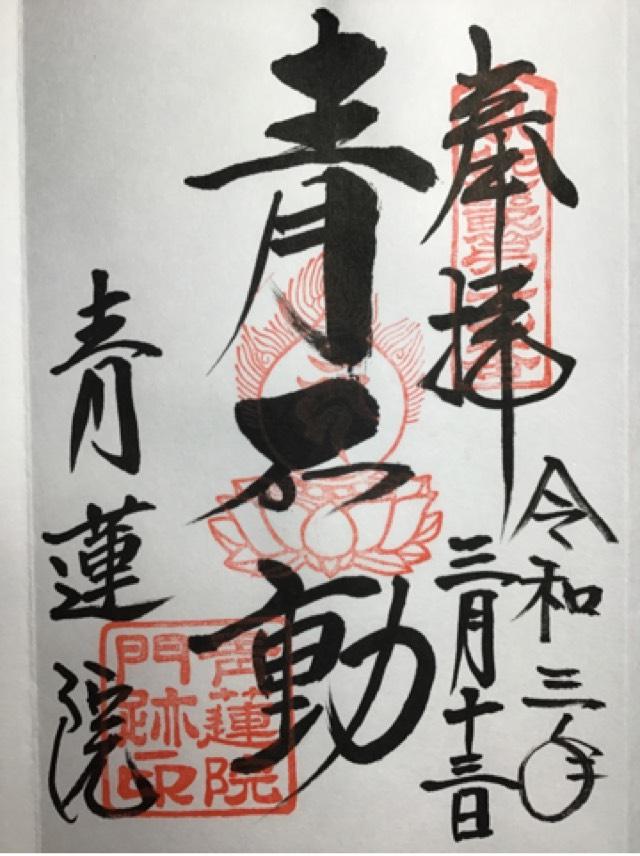 奉拝
令和三年
三月十三日
青不動
青蓮院
青蓮院
門跡印